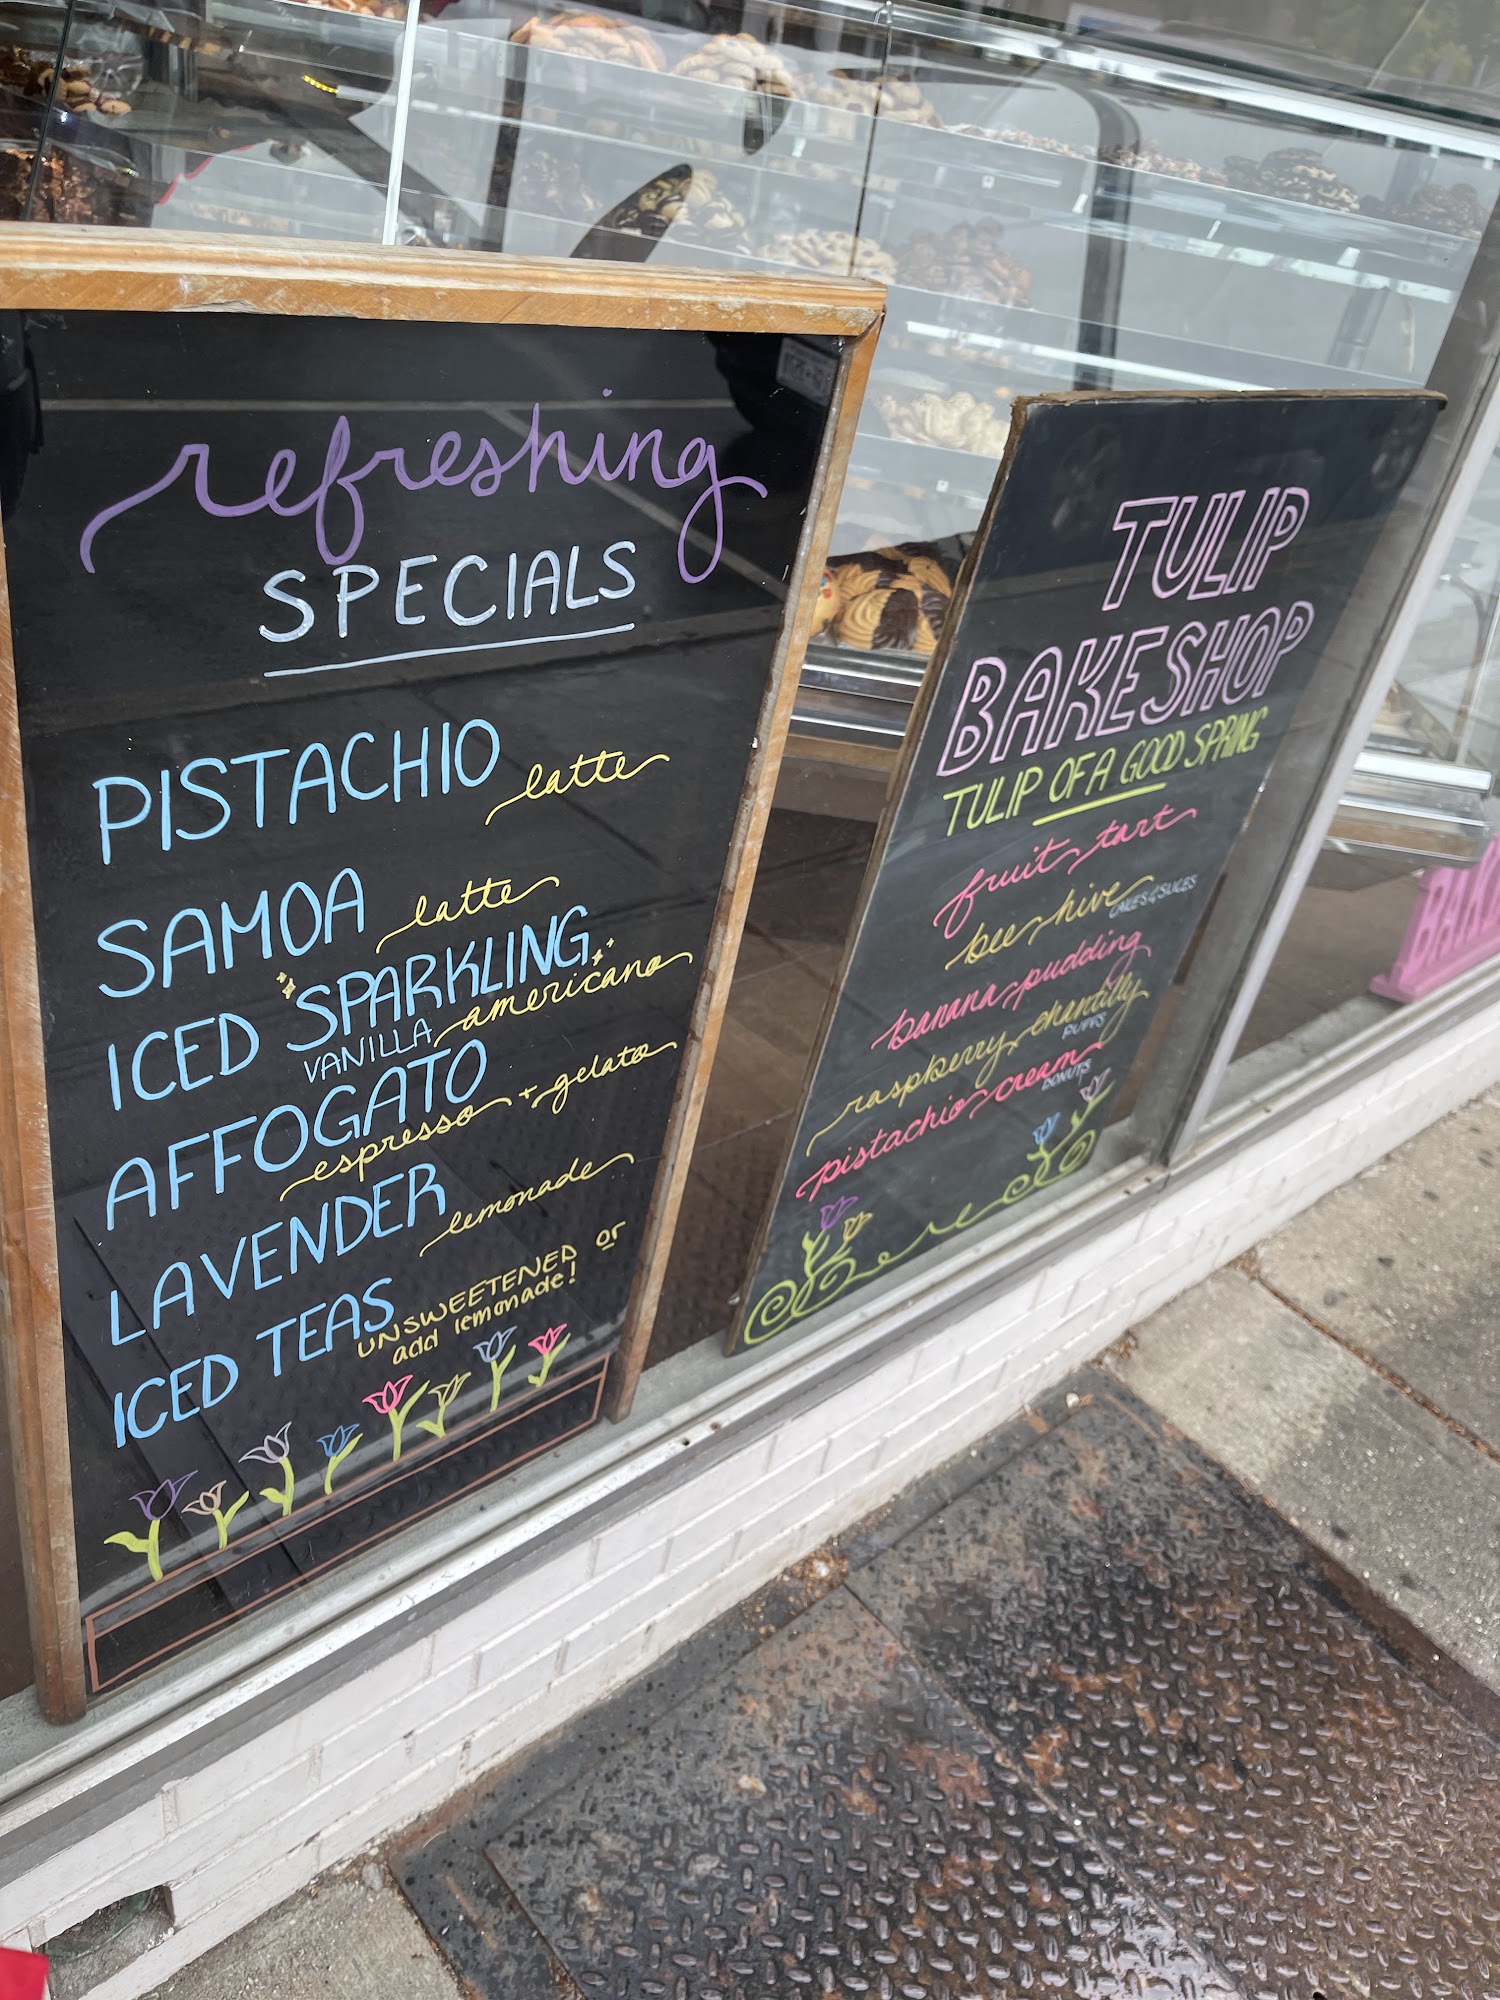 refreshing
SPECIALS
PISTACHIO latte
SAMOA latte
ICED SPARKLING
VANILLA americano
AFFOGATO
espresso + gelato
LAVENDER lemonade
ICED TEAS UNSWEETENED or
add lemonade!
TULIP
BAKESHOP
TULIP OF A GOOD SPRING
fruit tart
bee hive
CAKES & SLICES
banana pudding
raspberry chantilly
PUFFS
pistachio cream
DONUTS